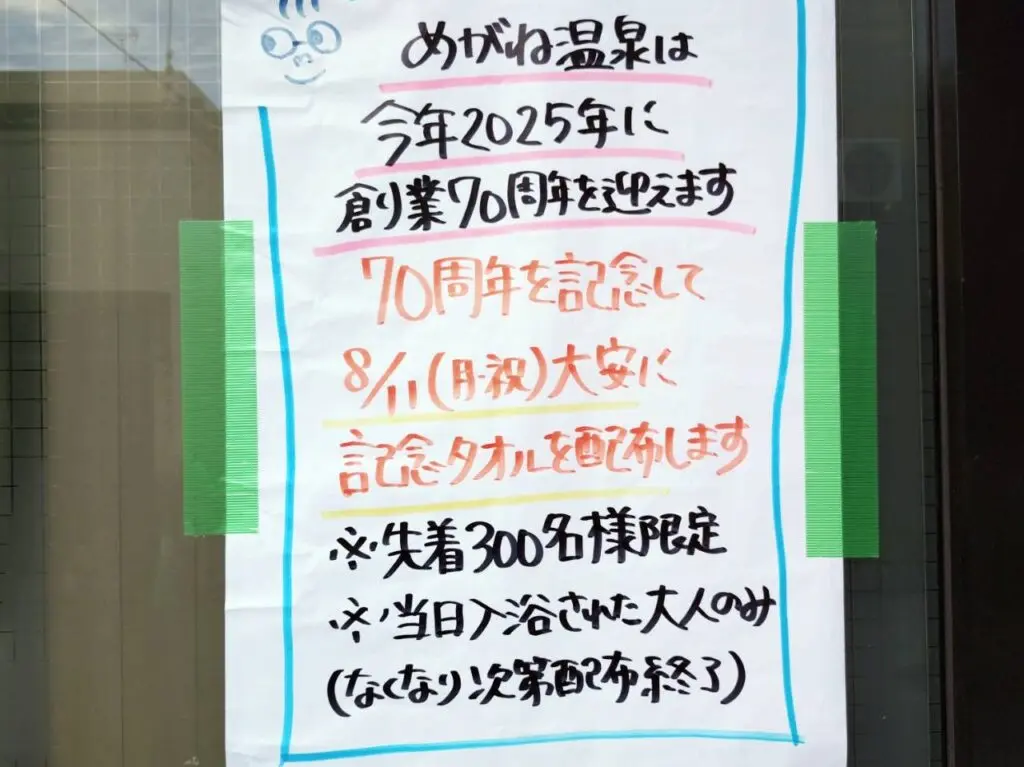 めがね温泉は
今年2025年に
創り業70周年を迎えます
70周年を記念して
8/11(月・祝)大安に
記念タオルを配布します
※先着300名様限定
※当日入浴された大人のみ
(なくなり次第配布終了)